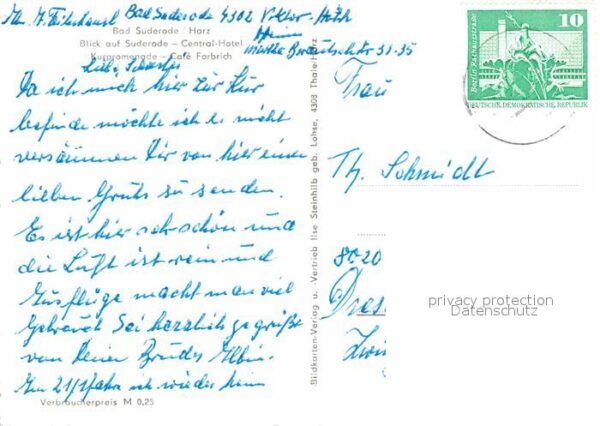 Bad Suderode 4302 Viktor-
Heim
Bad Suderode / Harz
Blick auf Suderode – Central-Hotel
Kurpromenade – Café Forbrich
31-35
Da ich mich hier zur Kur
befinde möchte ich es nicht
versäumen Dir von hier einen
lieben Gruß zu senden.
Es ist hier sehr schön und
die Luft ist rein und
Ausflüge macht man viel
Gebrauch Sei herzlich gegrüßt
von Deiner Bruder
Am 21/1 fahre ich wieder heim
Verbraucherpreis M 0,25
Bildkarten-Verlag u. -Vertrieb Ilse Steinhilb geb. Lohse, 4308 Thale/Harz
10
Berlin, Rathausstraße
DEUTSCHE DEMOKRATISCHE REPUBLIK
Frau
Th. Schmidt
8020
Dres
Zwin
privacy protection
Datenschutz